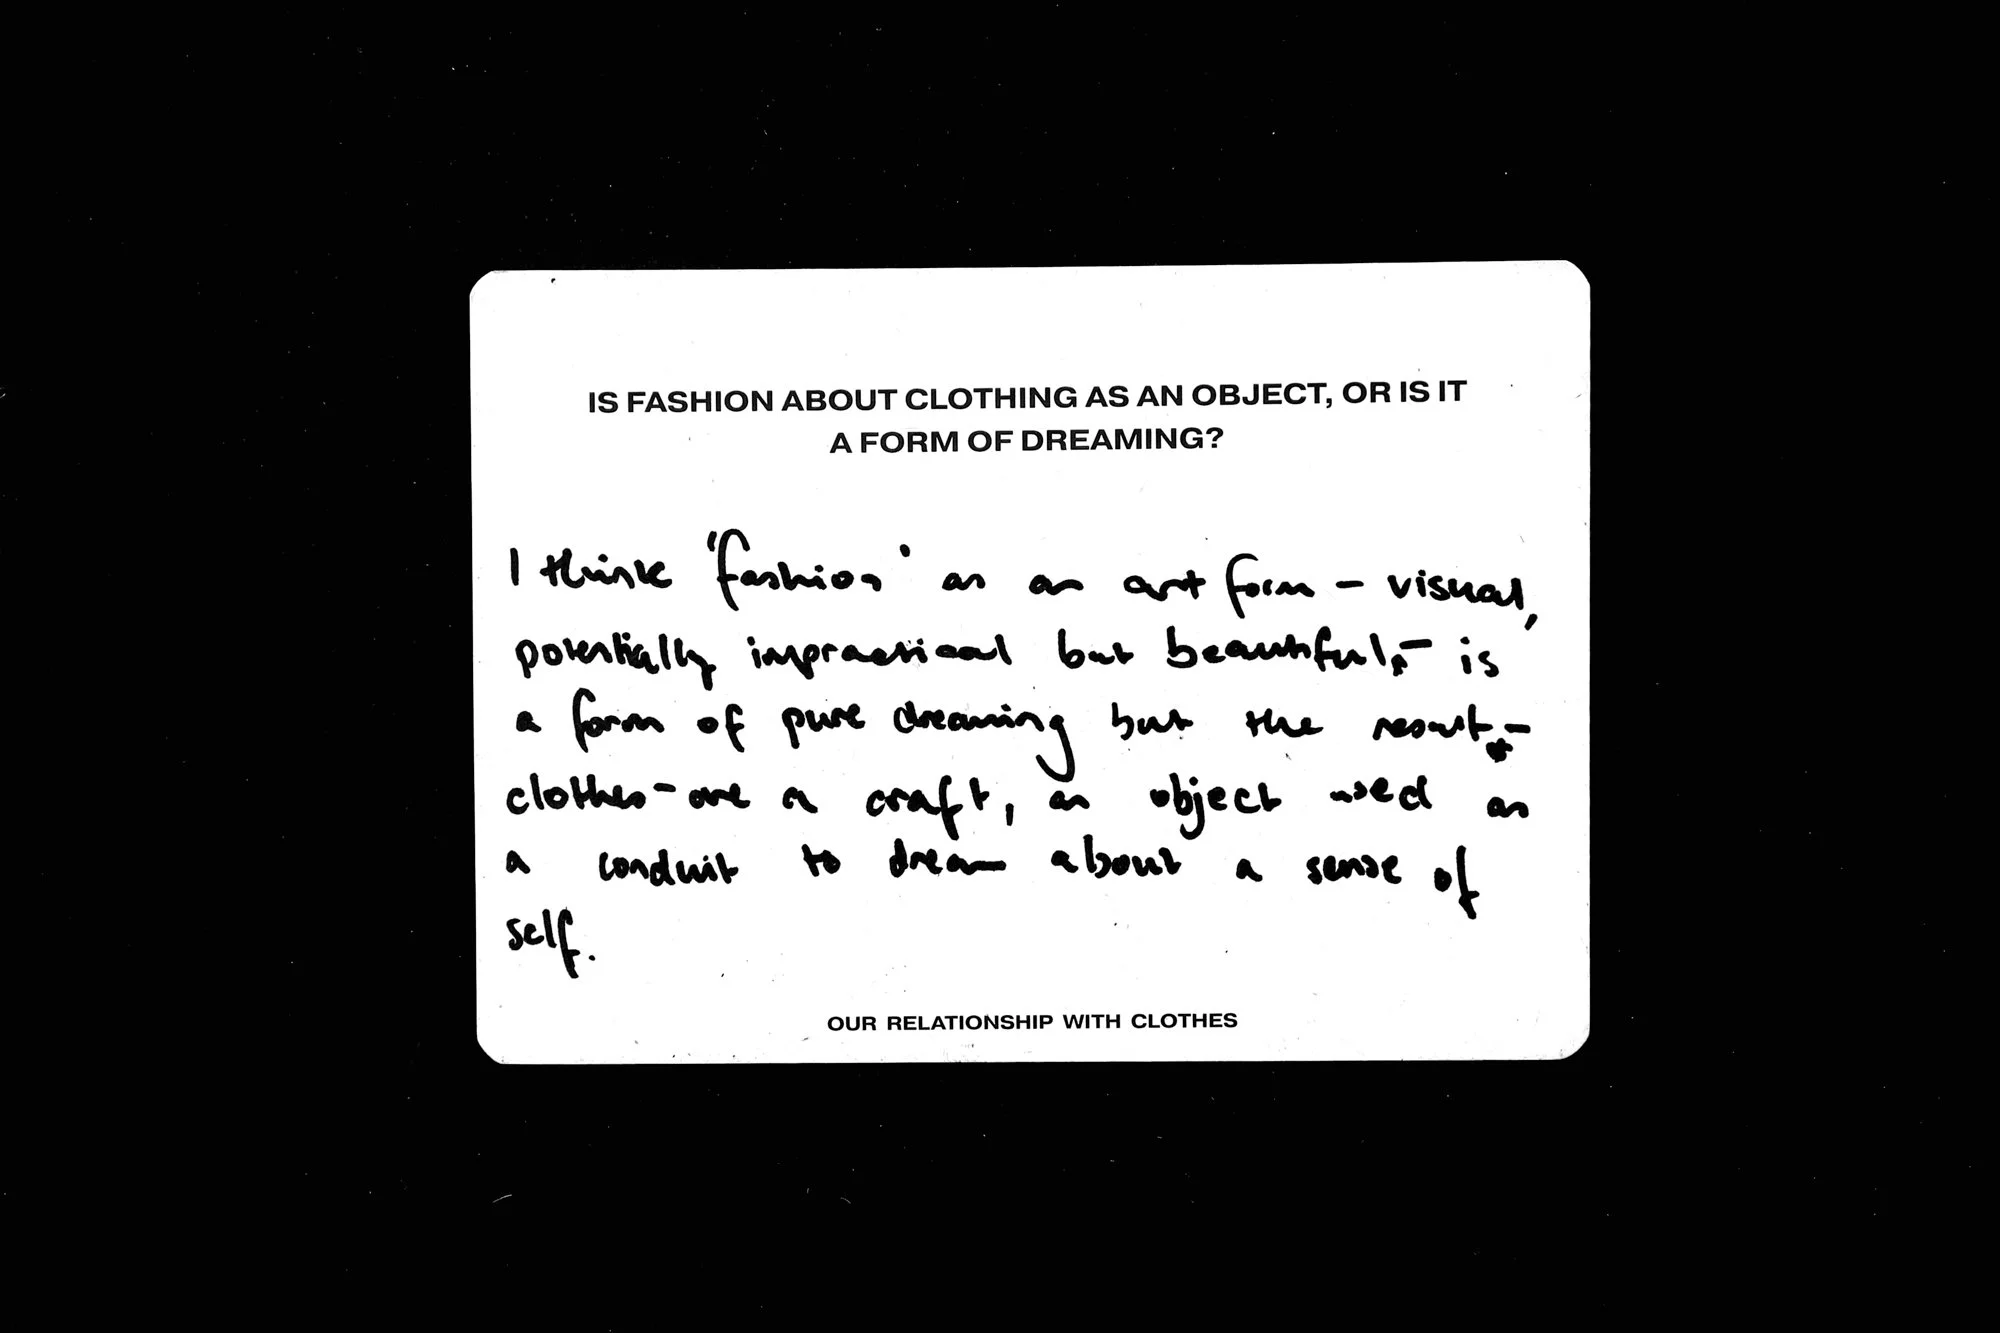 IS FASHION ABOUT CLOTHING AS AN OBJECT, OR IS IT
A FORM OF DREAMING?
I think 'fashion' as an art form – visual,
potentially impractical but beautiful, – is
a form of pure dreaming but the result –
clothes – are a craft, an object used as
a conduit to dream about a sense of
self.
OUR RELATIONSHIP WITH CLOTHES